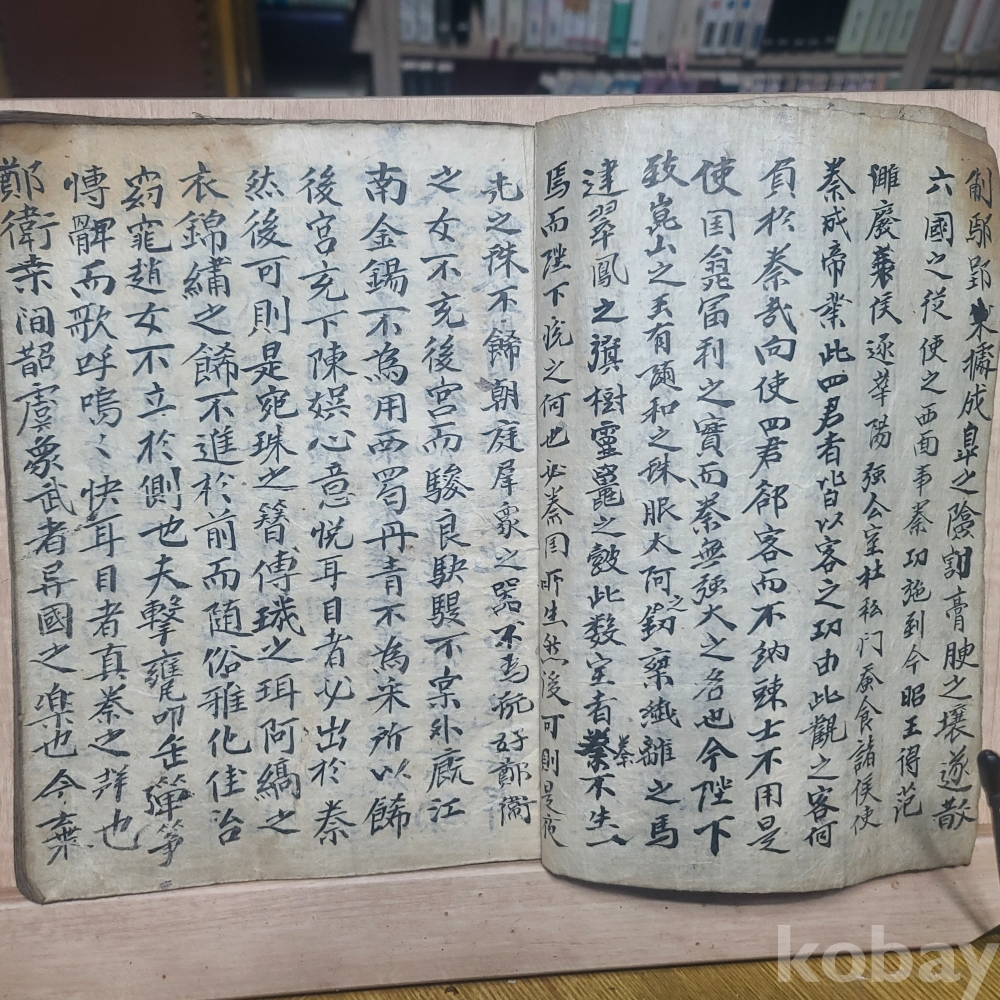 制鄢郢東據成皐之險割膏腴之壤遂散
六國之從使之西面事秦功施到今昭王得范
雎廢穰侯逐華陽强公室杜私门蚕食諸侯使
秦成帝業此四君者皆以客之功由此觀之客何
負於秦㢤向使四君郤客而不納疎士不用是
使国無富利之實而秦無强大之名也今陛下
致崑山之玉有随和之珠服太阿之釰乘纖離之馬
建翠鳳之旗樹靈鼉之皷此数宝者秦不生一
焉而陛下悅之何也必秦囯所生然後可則是夜
光之珠不餙朝庭犀象之器不為玩好鄭衛
之女不充後宮而駿良駃騠不宲外廐江
南金錫不為用西蜀丹青不為采所以餙
後宮充下陳娯心意悅耳目者必出於秦
然後可則是宛珠之簪傅璣之珥阿縞之
衣錦繡之餙不進於前而随俗雅化佳冶
窈窕趙女不立於側也夫擊甕叩缶彈筝
愽髀而歌呼嗚〻快耳目者真秦之聲也
鄭衛桒间韶虞象武者异國之樂也今棄
kobay